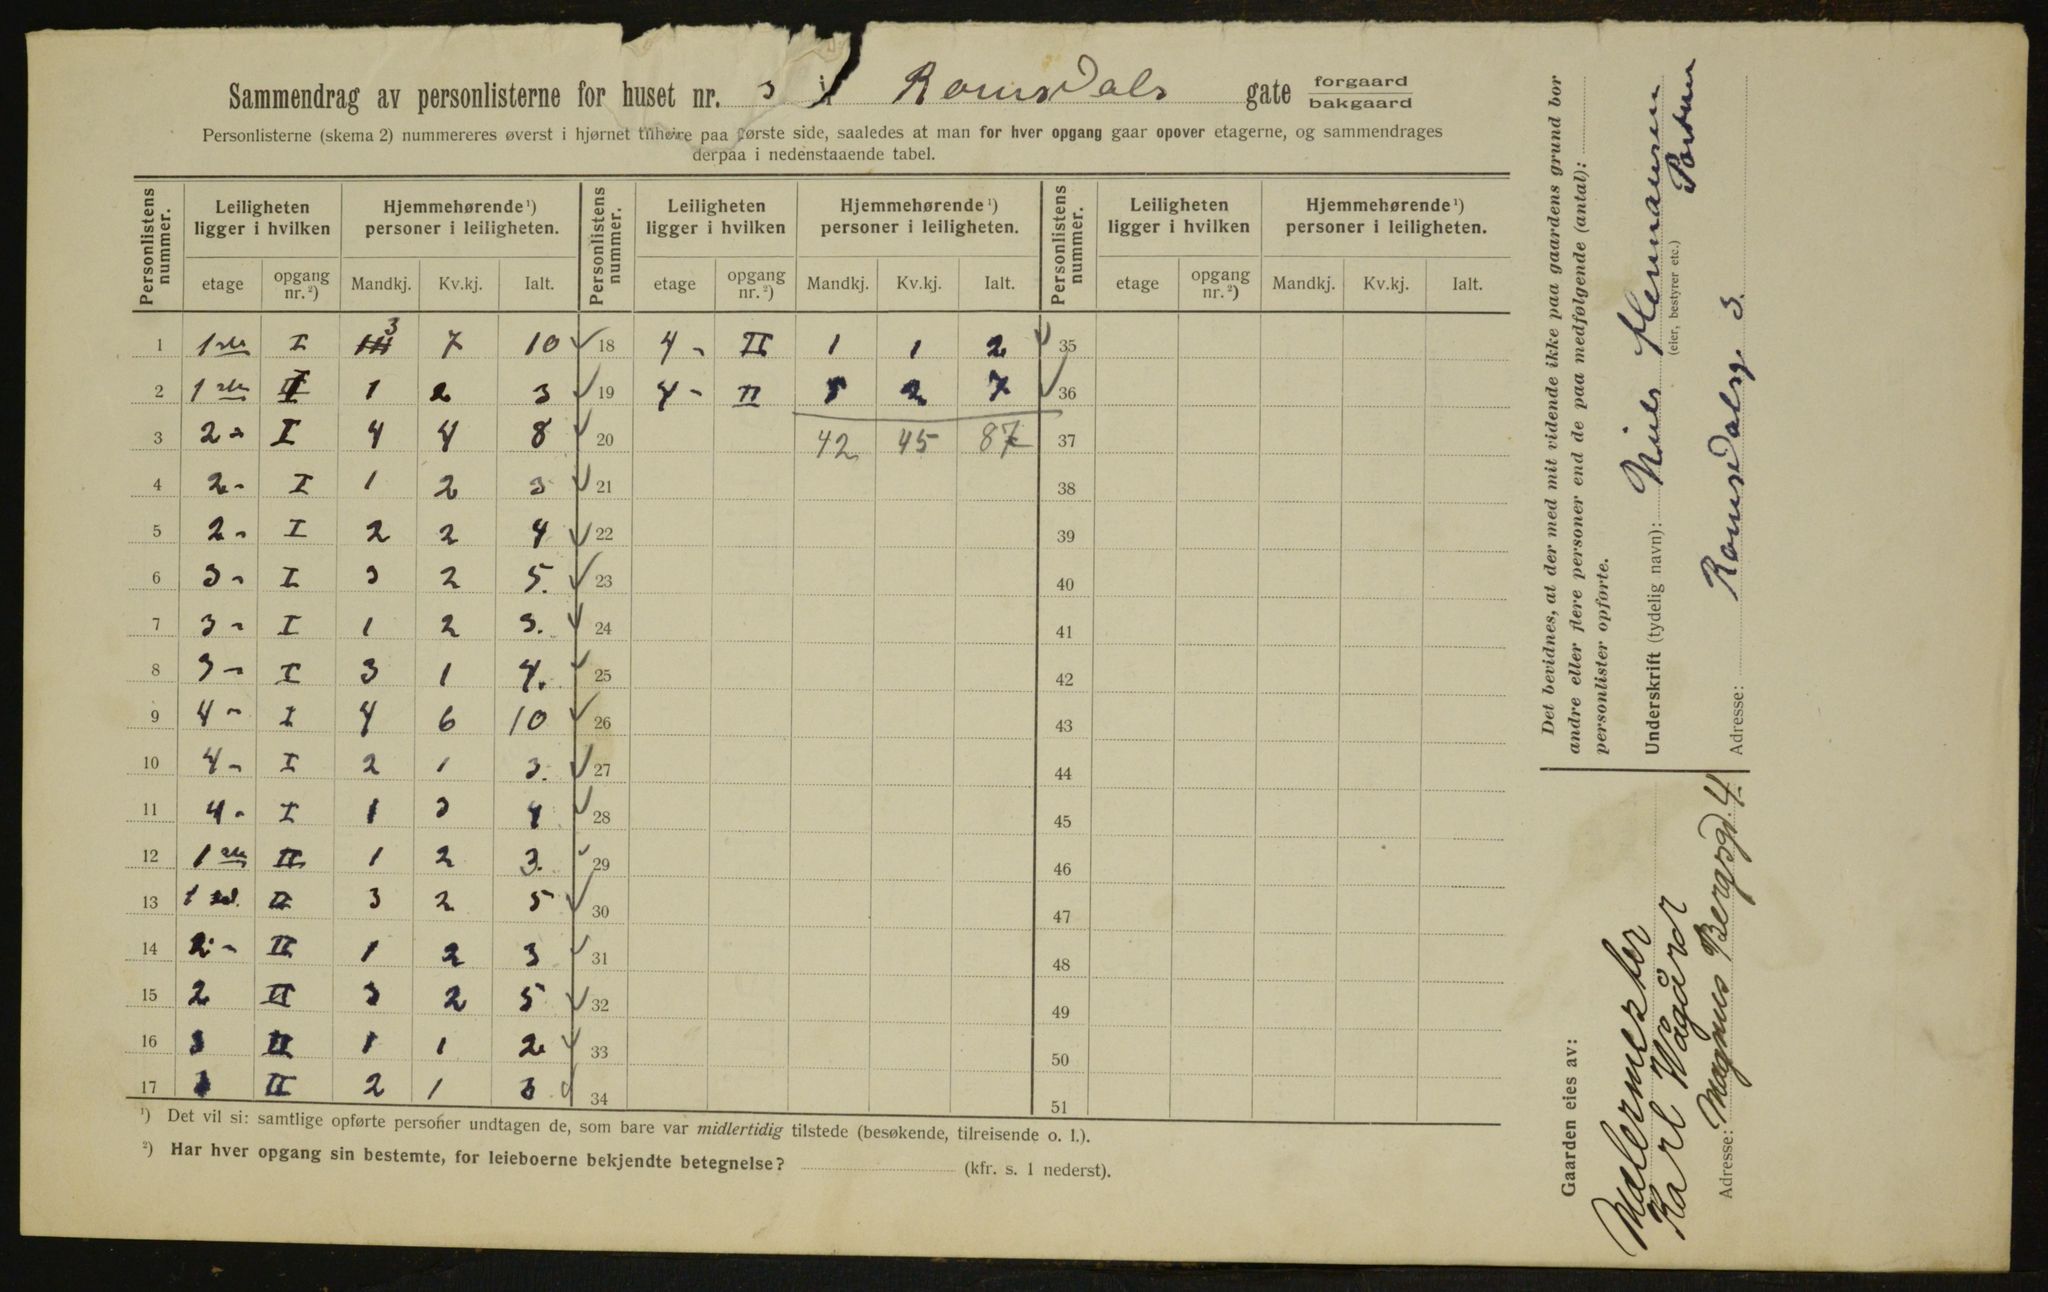 Sammendrag av personlisterne for huset nr. 3 i Romsdals gate forgaard bakgaard
Personlisterne (skema 2) nummereres øverst i hjørnet tilhøire paa første side, saaledes at man for hver opgang gaar opover etagerne, og sammendrages
derpaa i nedenstaaende tabel.
Personlistens nummer. Leiligheten ligger i hvilken Hjemmehørende ¹) personer i leiligheten. Personlistens nummer. Leiligheten ligger i hvilken Hjemmehørende ¹) personer i leiligheten. Personlistens nummer. Leiligheten ligger i hvilken Hjemmehørende ¹) personer i leiligheten.
etage opgang nr. ²) Mandkj. Kv.kj. Ialt. etage opgang nr. ²) Mandkj. Kv.kj. Ialt. etage opgang nr. ²) Mandkj. Kv.kj. Ialt.
1 1ste I 3 7 10 ✓ 18 4 - II 1 1 2 ✓ 35
2 1ste I 1 2 3 ✓ 19 4 - II 5 2 7 ✓ 36
3 2 - I 4 4 8 ✓ 20 42 45 87 37
4 2 - I 1 2 3 ✓ 21 38
5 2 - I 2 2 4 ✓ 22 39
6 3 - I 3 2 5. ✓ 23 40
7 3 - I 1 2 3. ✓ 24 41
8 3 - I 3 1 4. ✓ 25 42
9 4 - I 4 6 10 ✓ 26 43
10 4 - I 2 1 3. ✓ 27 44
11 4 - I 1 3 4 ✓ 28 45
12 1ste II 1 2 3. ✓ 29 46
13 1 II 3 2 5 ✓ 30 47
14 2 - II 1 2 3 ✓ 31 48
15 2 II 3 2 5 ✓ 32 49
16 3 II 1 1 2 ✓ 33 50
17 3 II 2 1 3 ✓ 34 51
¹) Det vil si: samtlige opførte personer undtagen de, som bare var midlertidig tilstede (besøkende, tilreisende o. l.).
²) Har hver opgang sin bestemte, for leieboerne bekjendte betegnelse? (kfr. s. 1 nederst).
Det bevidnes, at der med mit vidende ikke paa gaardens grund bor
andre eller flere personer end de paa medfølgende (antal):
personlister opførte.
Underskrift (tydelig navn): Nils Hermansen
(eier, bestyrer etc.)
Adresse: Romsdalsg. 3.
Gaarden eies av:
Malermester
Karl Wågård
Adresse: Magnus Bergsgd. 4.